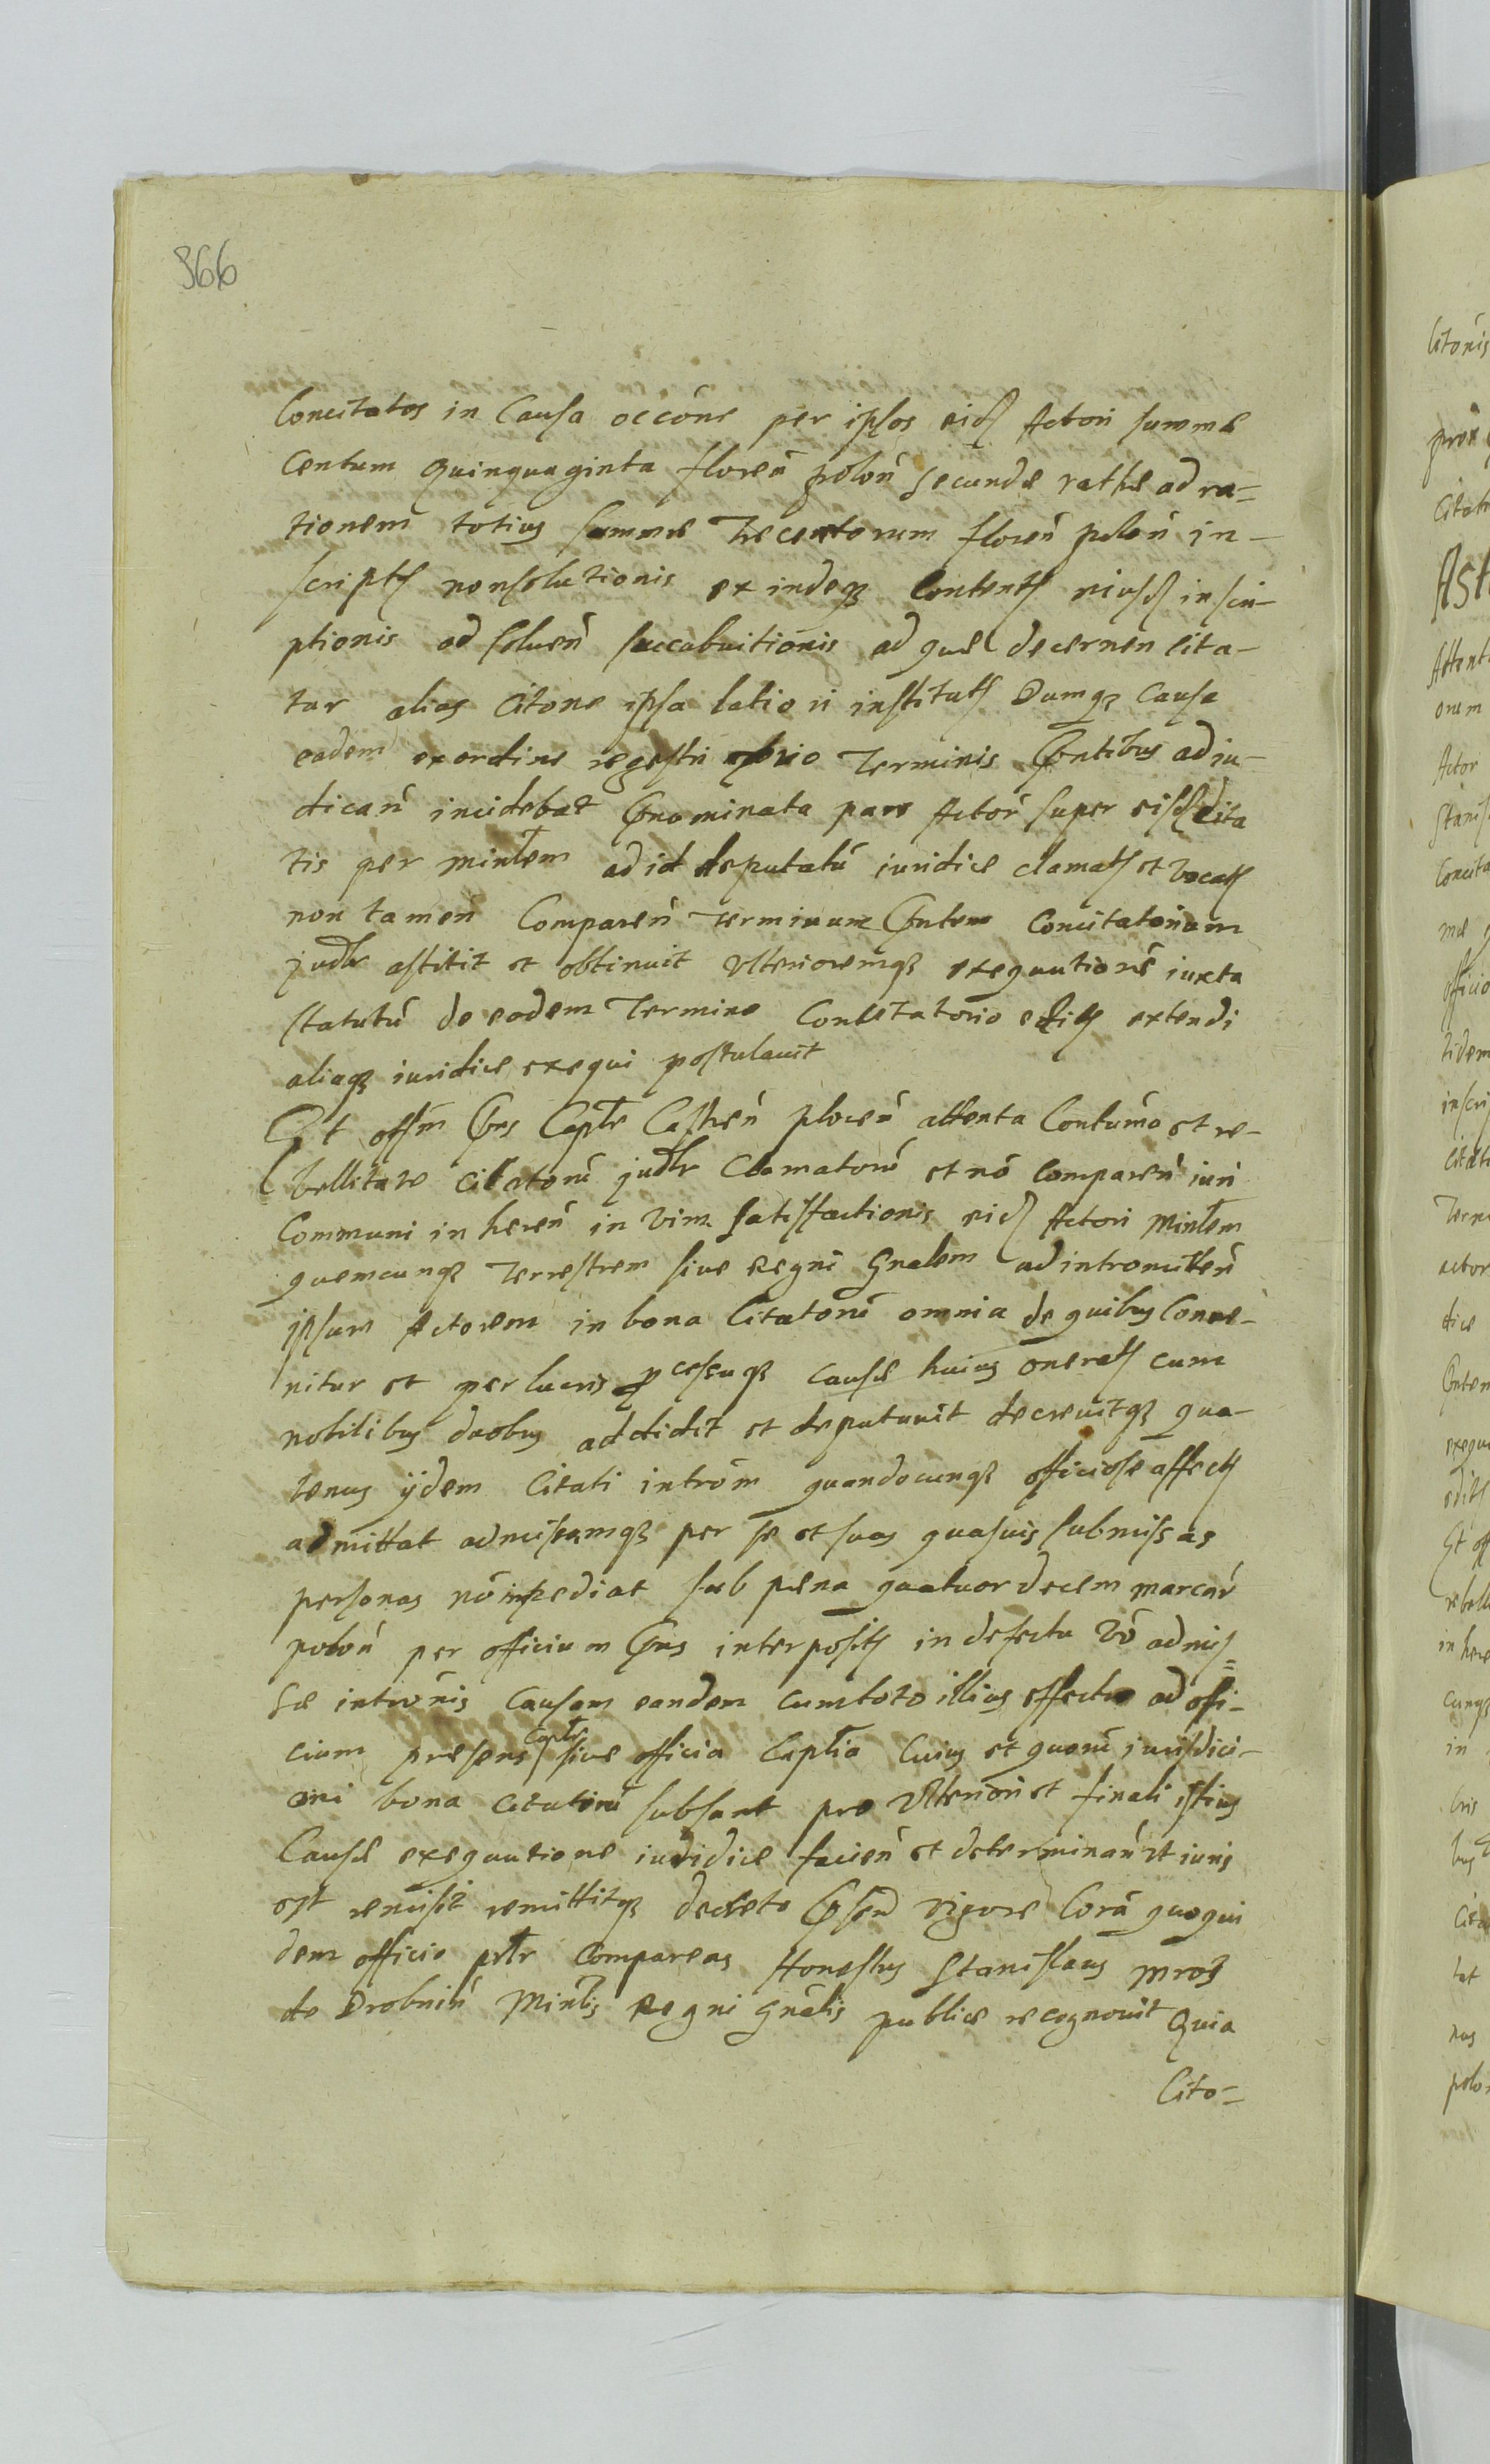 966
Concitatos in Causa occóne per ipsos eidẜ Actori summæ
Centum quinquaginta floreń poloń secundæ rathæ ad ra-
tionem totius summæ Trecentorum floreń poloń in-
scriptẜ nonsolutionis ex indeqꝫ Contentẜ eiusdẜ inscri-
ptionis ad solueń succubuitionis ad quæ decernen cita-
tur alias Citone ipsa latio ii institutẜ Dumqꝫ Causa
eadem ex ordine regestri Terminis Pntibus ad iu-
dicań incidebat Pnominata pars Actoń super eisdẜ Cita
tis per minlem ad id deputatū iuridice clamatẜ et vocatẜ
non tameń Compareń Terminum Pntem Concitatorium
judlr astitit et obtinuit Vlterioremqꝫ exequutionē iuxta
statutū de eodem Termino Concitatorio editẜ extendi
aliaqꝫ iuridice exequi postulauit
Et offm Pns Caplr Castreń ploceń attenta Contumā et re-
bellitate Citatorū judlr Clamatorū et nō Compareń iuri
Communi in hereń in Vim satisfactionis eidẜ Actori Minlem
quemcunqꝫ Terrestrem siue Regni Gnalem ad intromitteń
ipsum Actorem in bona Citatorū omnia de quibus Conue-
nitur et per lucris ꝓcessuqꝫ causæ huius oneratẜ cum
nobilibus duobus addidit et deputauit decreuitqꝫ qua-
tenus ijdem Citati introm quandocunqꝫ officiose affectẜ
admittat admissamqꝫ per se et suas quasuis submissas
personas nō impediat sub pæna quatuordecem marcaŕ
poloń per officium Pns interpositẜ in defectu Vō admis-
sæ intronis Causam eandem cum toto illius effectu ad offi-
cium presens Caplr siue officia Caplia Cuius et quorū iurisdici-
oni bona Citatorū subsunt pro Vlteriori et finali istius
Causæ exequutione iuridice facień et determinań vt iuris
est remisit remittitqꝫ decreto Pseń Vigore Corā quoqui
dem officio prlr Compareas Honestus Stanislaus Mroz
de Drobniń Minlis Regni Gnalis publice recognouit Quia
Cito-